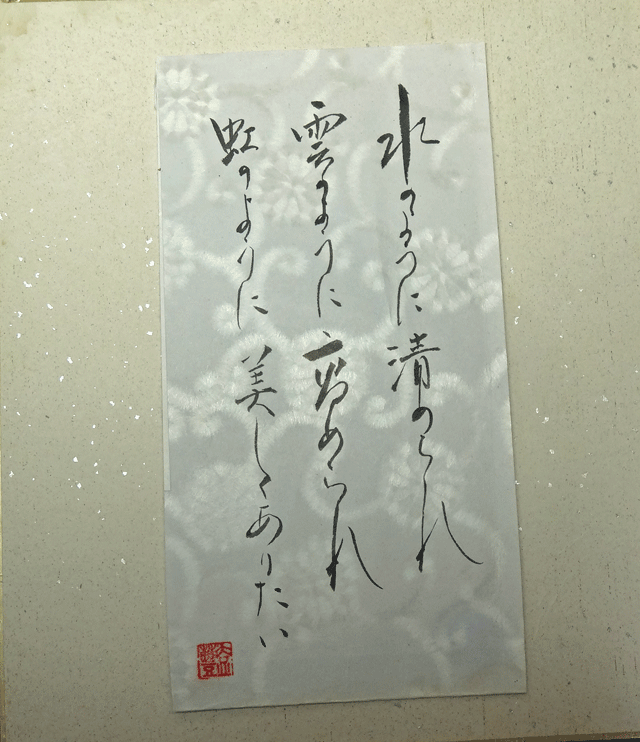 水のように清められ
雲のように高められ
虹のように美しくありたい